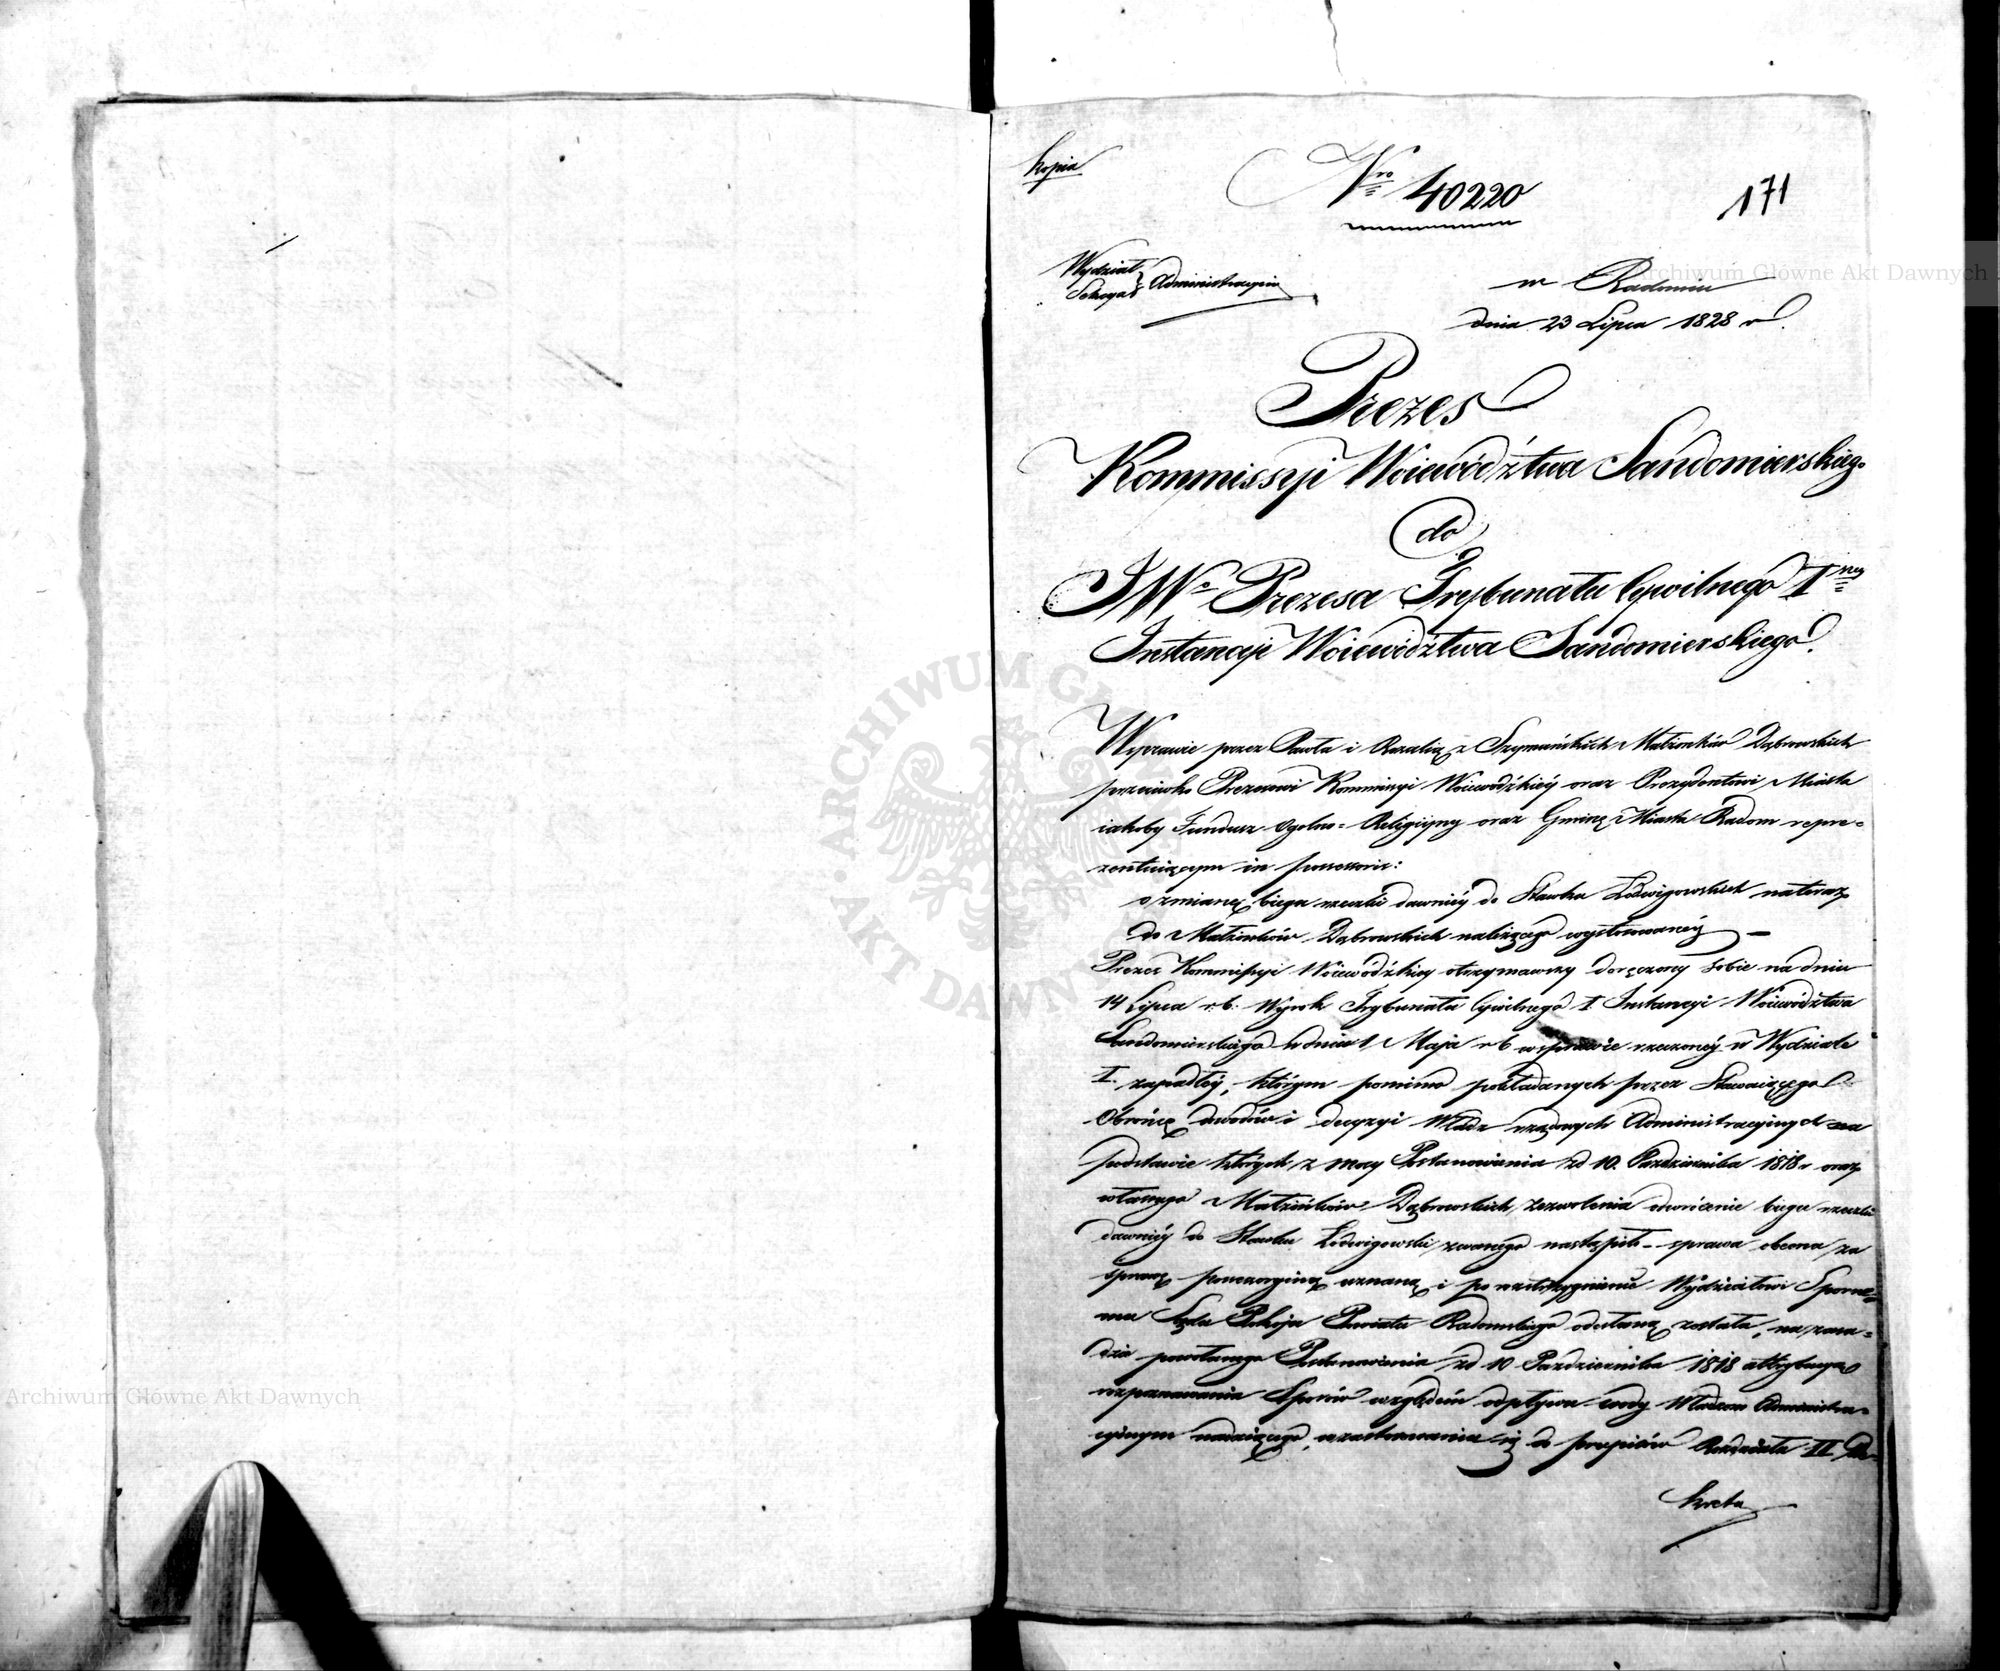 Kopia
Nro 40220
171
Wydział Administracyiny
Sekcya
w Radomiu
dnia 23 Lipca 1828 r.
Prezes
Kommissyi Woiewództwa Sandomierskiego
do
JWo Prezesa Trybunału Cywilnego Iney
Instancyi Woiewództwa Sandomierskiego.
W sprawie przez Pawła i Rozalią z Szymańskich Małżonków Dąbrowskich
przeciwko Prezesowi Kommissyi Woiewódzkiéy oraz Prezydentowi Miasta
iakoby Fundusz Ogolno-Religiyny oraz Gminę Miasta Radom repre-
zentuiącym in possessorio:
o zmianę biegu rzeczki dawniéy do Stawku Lodwigowskich na teraz
do Małżonków Dąbrowskich należącego wystosowanéy —
Prezes Kommissyi Woiewódzkiey otrzymawszy doręczony sobie na dniu
14 Lipca r.b. Wyrok Trybunału Cywilnego I Instancyi Woiewództwa
Sandomierskiego w dniu 1 Maja r b w sprawie rzeczonéy w Wydziale
I. zapadłéy, którym pomimo pokładanych przez Stawaiącego
Obrońcę dowodów i decyzyi Władz rządowych Administracyinych na
podstawie których z mocy Postanowienia zd 10. Pazdziernika 1818 r oraz
własnego Małżonków Dąbrowskich zezwolenia odwrócenie biegu rzeczki
dawniéy do Stawku Lodwigowski zwanego nastąpiło - sprawa obecna za
sprawę possessoryiną uznaną i po rozstrzygnienie Wydziałowi Sporne-
mu Sądu Pokoju Powiatu Radomskiego odesłaną została, na zasa-
dzie powołanego Postanowienia zd 10 Pazdziernika 1818 attrybucyą
rozpoznawania Sporów względem odpływu wody Władzom Administra-
cyinym nadaiącego, a zastosowania się do przepisów Rozdziału II De-
kretu